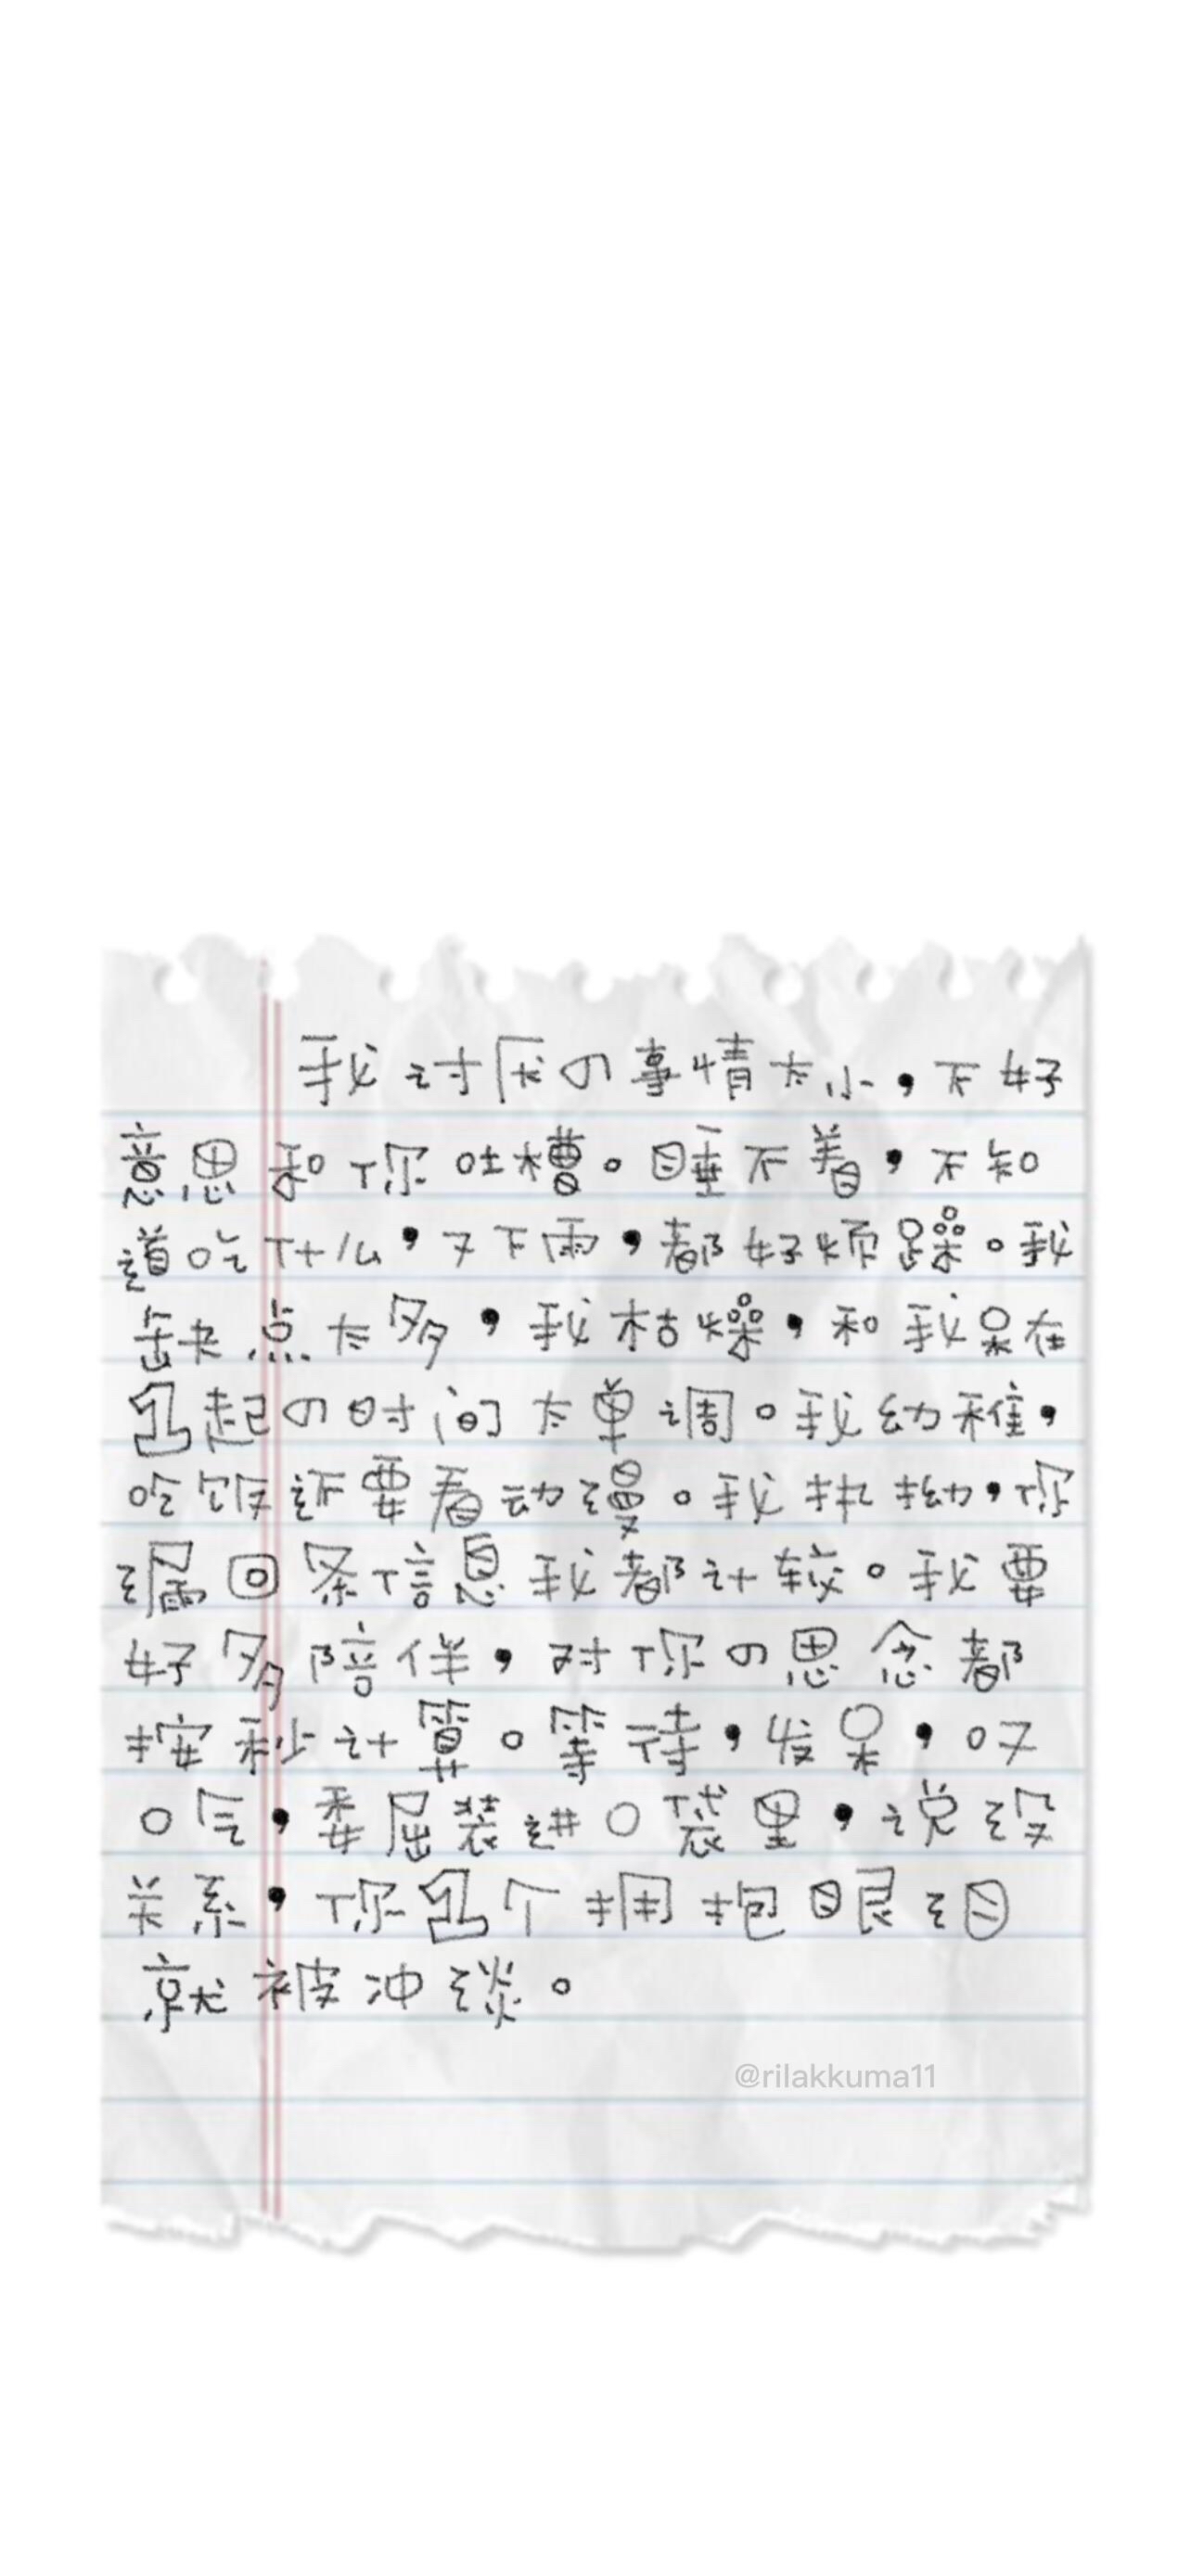 我讨厌の事情太小，不好
意思和你吐槽。睡不着，不知
道吃什么，又下雨，都好烦躁。我
缺点太多，我枯燥，和我呆在
1起の时间太单调。我幼稚，
吃饭还要看动漫。我执拗，你
漏回条信息我都计较。我要
好多陪伴，对你の思念都
按秒计算。等待，发呆，叹
口气，委屈装进口袋里，说没
关系，你1个拥抱眼泪
就被冲淡。
@rilakkuma11